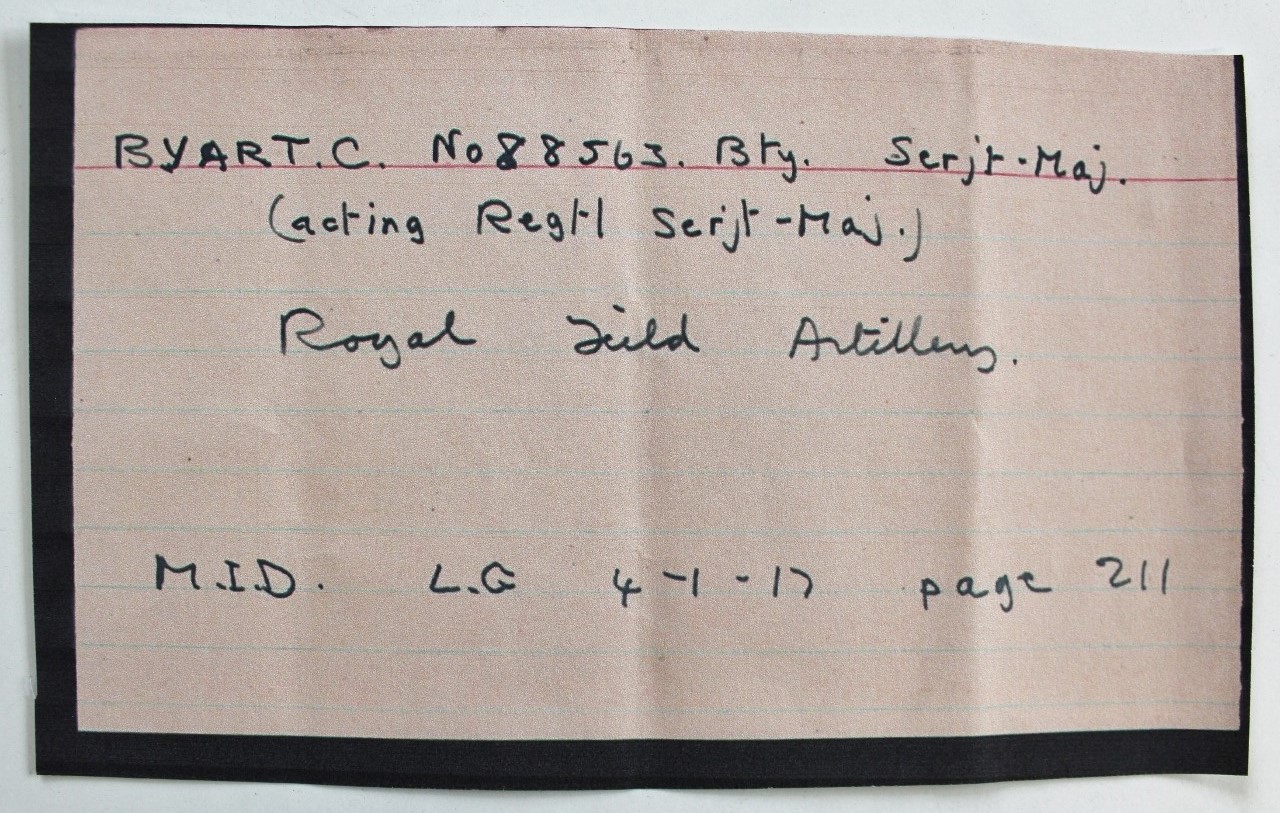 BYART.C. No 88563. Bty. Serjt-Maj.
(acting Regtl Serjt-Maj.)
Royal Field Artillery.
M.I.D. L.G 4-1-17 page 211